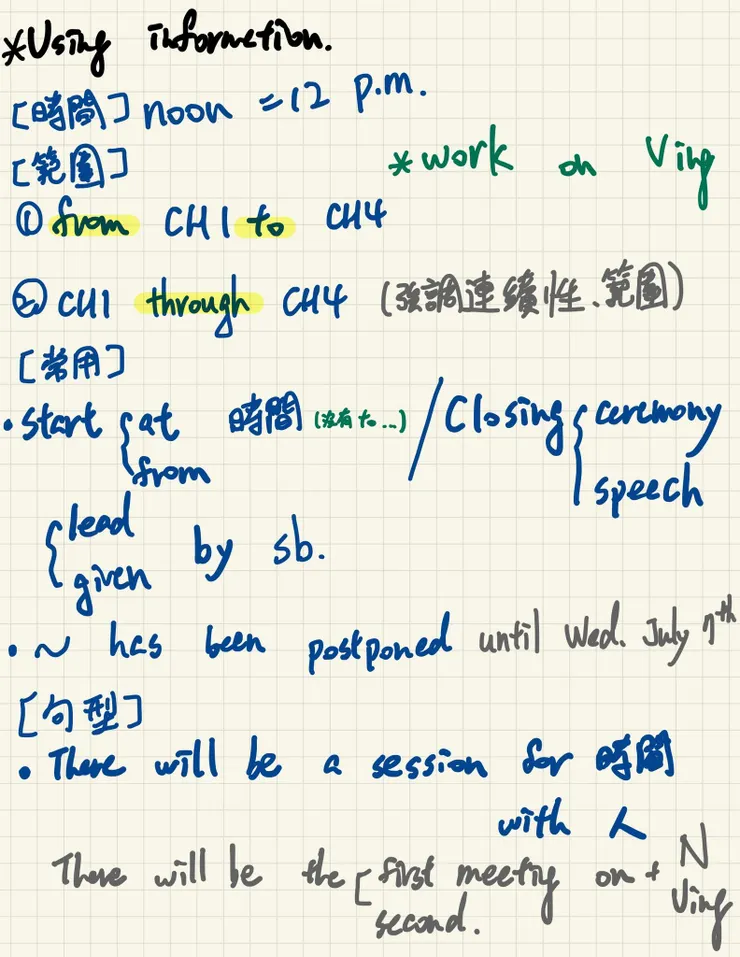 *Using informetion.
[時間] noon = 12 p.m.
[範圍]
*work on Ving
① from CH1 to CH4
② CH1 through CH4 (強調連續性、範圍)
[常用]
• start { at 時間 (沒有to...) / Closing { ceremony
from
speech
{ lead
given by sb.
• ~ has been postponed until Wed. July 7th
[句型]
• There will be a session for 時間
with 人
There will be the [ first meeting on + N
second. Ving